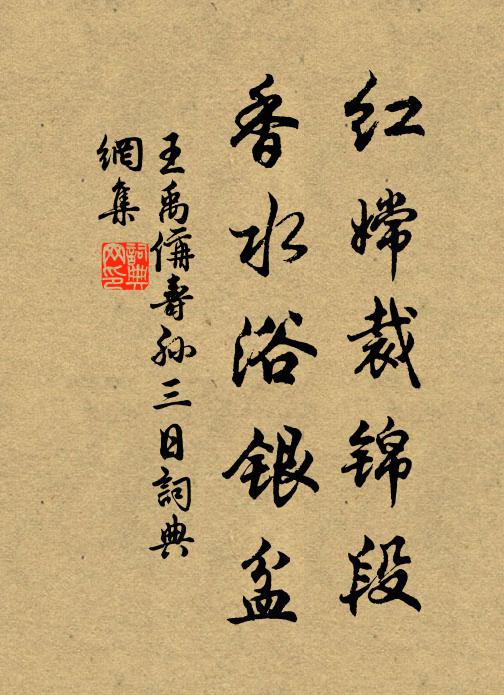 红嫦裁锦段
香水浴银盆
王禹偁壽孙三日詞典
網集
詞典
网印